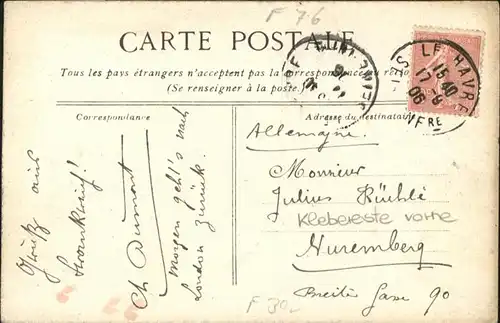 F 76
CARTE POSTALE
Tous les pays étrangers n'acceptent pas la correspondance au recto
(Se renseigner à la poste.)
LE HAVRE
15 40
17 -8
06
Correspondance
Gruß aus
Frankreich!
Ch Dumont
Morgen geht's nach
London zurück.
Adresse du destinataire
Allemagne.
Monsieur
Julius Büchlé
Klebereste vorne
Nuremberg
Breite Gasse 90
F 30.-